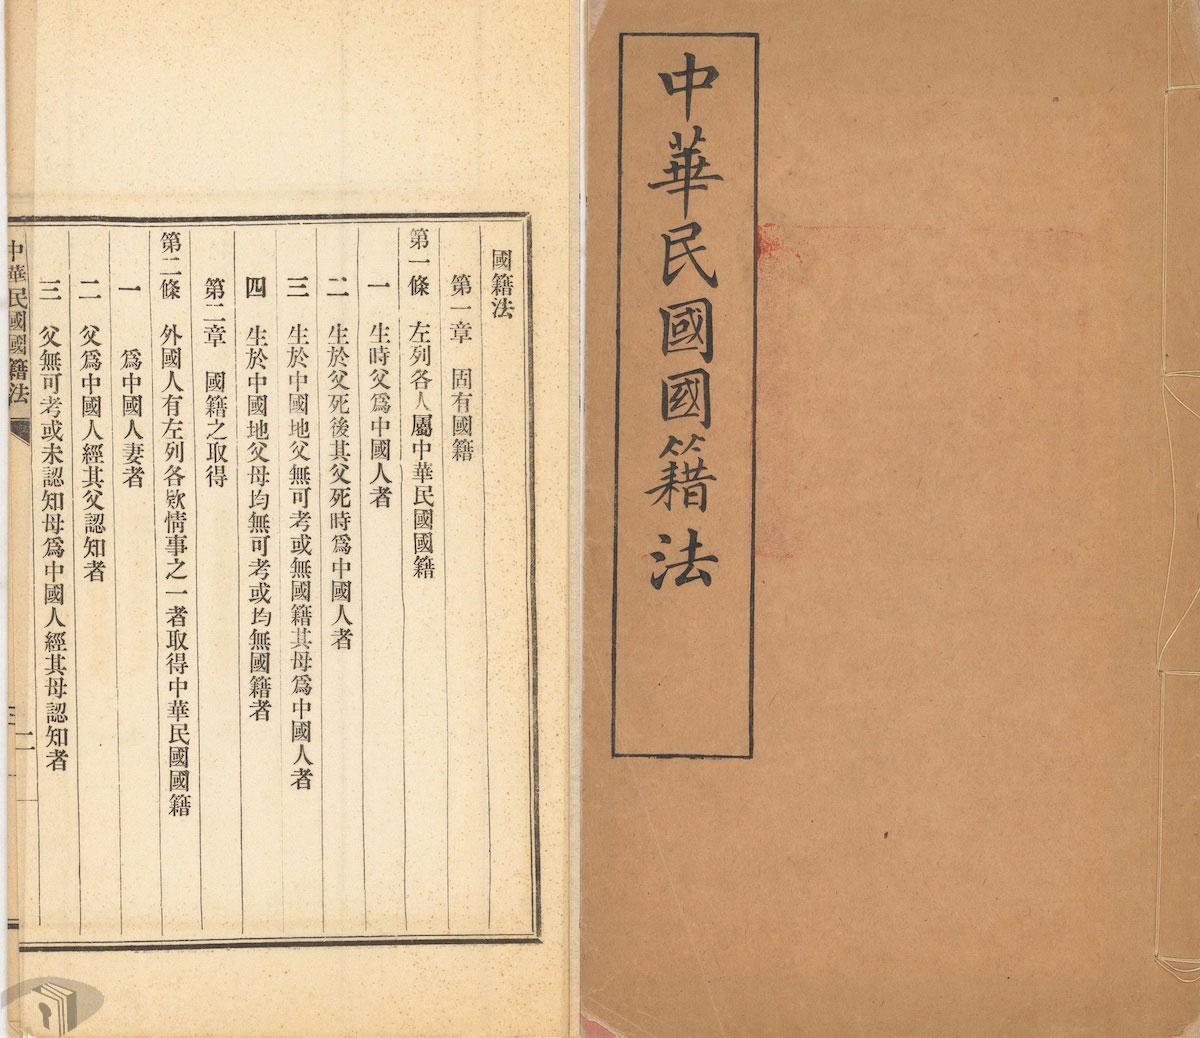 中華民國國籍法
國籍法
第一章　固有國籍
第一條　左列各人屬中華民國國籍
一　生時父爲中國人者
二　生於父死後其父死時爲中國人者
三　生於中國地父無可考或無國籍其母爲中國人者
四　生於中國地父母均無可考或均無國籍者
第二章　國籍之取得
第二條　外國人有左列各欵情事之一者取得中華民國國籍
一　爲中國人妻者
二　父爲中國人經其父認知者
三　父無可考或未認知母爲中國人經其母認知者
中華民國國籍法